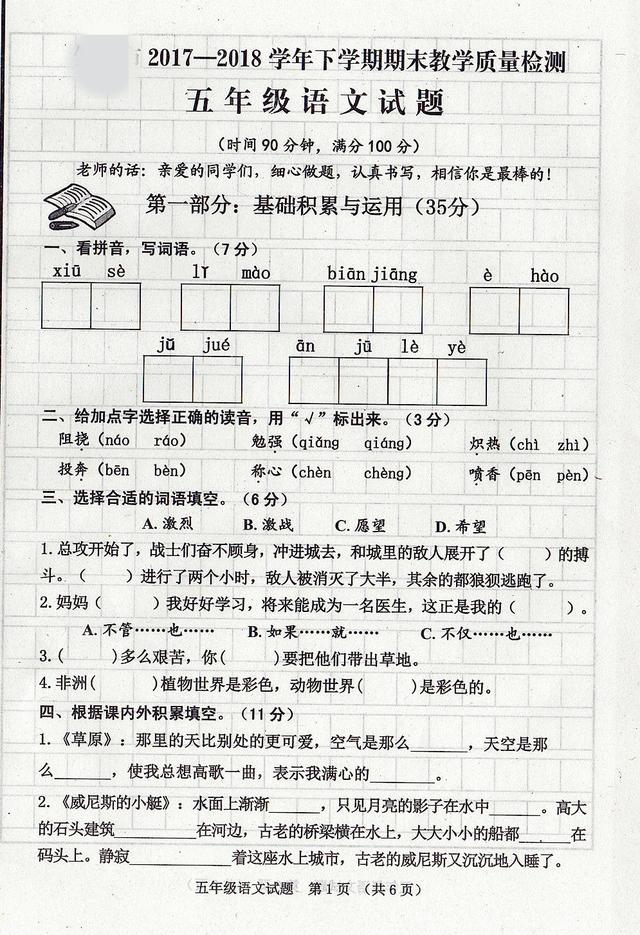 2017—2018 学年下学期期末教学质量检测
五年级语文试题
（时间 90 分钟，满分 100 分）
老师的话：亲爱的同学们，细心做题，认真书写，相信你是最棒的！
第一部分：基础积累与运用（35分）
一、看拼音，写词语。（7 分）
xiū sè lǐ mào biān jiāng è hào
jǔ jué ān jū lè yè
二、给加点字选择正确的读音，用“√”标出来。（3 分）
阻挠（náo ráo） 勉强（qiǎng qiáng） 炽热（chì zhì）
投奔（bēn bèn） 称心（chèn chèng） 喷香（pēn pèn）
三、选择合适的词语填空。（6 分）
A. 激烈 B. 激战 C. 愿望 D. 希望
1. 总攻开始了，战士们奋不顾身，冲进城去，和城里的敌人展开了（ ）的搏
斗。（ ）进行了两个小时，敌人被消灭了大半，其余的都狼狈逃跑了。
2. 妈妈（ ）我好好学习，将来能成为一名医生，这正是我的（ ）。
A. 不管……也…… B. 如果……就…… C. 不仅……也……
3. ( )多么艰苦，你( )要把他们带出草地。
4. 非洲( )植物世界是彩色，动物世界( )是彩色的。
四、根据课内外积累填空。（11 分）
1. 《草原》：那里的天比别处的更可爱，空气是那么______，天空是那
么______，使我总想高歌一曲，表示我满心的________。
2. 《威尼斯的小艇》：水面上渐渐______，只见月亮的影子在水中______。高大
的石头建筑__________在河边，古老的桥梁横在水上，大大小小的船都______在
码头上。静寂____________着这座水上城市，古老的威尼斯又沉沉地入睡了。
五年级语文试题 第 1 页 （共 6 页）